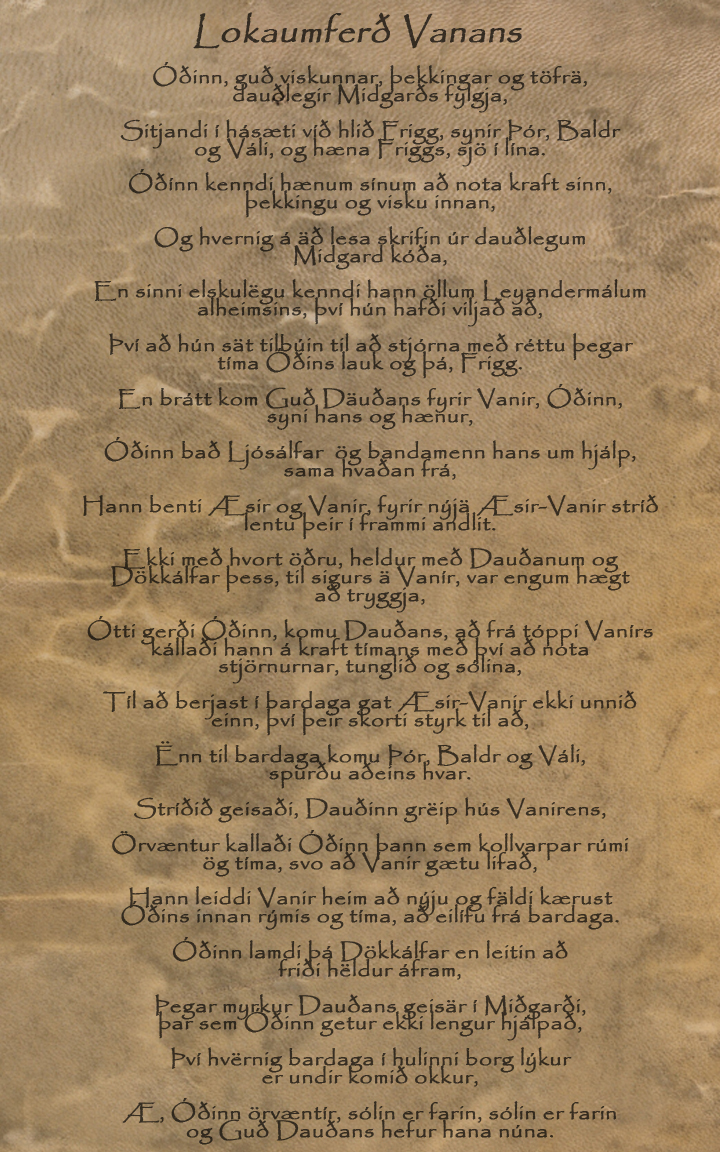 Lokaumferð Vanans
Óðinn, guð viskunnar, þekkingar og töfrä,
dauðlegir Midgarðs fylgja,
Sitjandi í hásæti við hlið Frigg, synir Þór, Baldr
og Váli, og hæna Friggs, sjö í lína.
Óðinn kenndi hænum sínum að nota kraft sinn,
þekkingu og visku innan,
Og hvernig á äð lesa skrifin úr dauðlegum
Midgard kóða,
En sinni elskulëgu kenndi hann öllum Leyandermálum
alheimsins, því hún hafði viljað að,
Því að hún sät tilbúin til að stjórna með réttu þegar
tíma Óðins lauk og þá, Frigg.
En brátt kom Guð Däuðans fyrir Vanir, Óðinn,
syni hans og hænur,
Óðinn bað Ljósálfar ög bandamenn hans um hjálp,
sama hvaðan frá,
Hann benti Æsir og Vanir, fyrir nýjä Æsir-Vanir stríð
lentu þeir í frammi andlit.
Ekki með hvort öðru, heldur með Dauðanum og
Dökkálfar þess, til sigurs ä Vanir, var engum hægt
að tryggja,
Ótti gerði Óðinn, komu Dauðans, að frá tóppi Vanirs
kállaði hann á kraft tímans með því að nota
stjörnurnar, tunglið og sólina,
Til að berjast í þardaga gat Æsir-Vanir ekki unnið
einn, því þeir skorti styrk til að,
Ënn til bardaga komu Þór, Baldr og Váli,
spurðu aðeins hvar.
Stríðið geisaði, Dauðinn grëip hús Vanirens,
Örvæntur kallaði Óðinn þann sem kollvarpar rúmi
ög tíma, svo að Vanir gætu lifað,
Hann leiddi Vanir heim að nýju og fäldi kærust
Óðins innan rýmis og tíma, að eilífu frá bardaga.
Óðinn lamdi þá Dökkálfar en leitin að
friði hëldur áfram,
Þegar myrkur Dauðans geisär í Miðgarði,
þar sem Óðinn getur ekki lengur hjálpað,
Því hvërnig bardaga í hulinni borg lýkur
er undir komið okkur,
Æ, Óðinn örvæntir, sólin er farin, sólin er farin
og Guð Dauðans hefur hana núna.